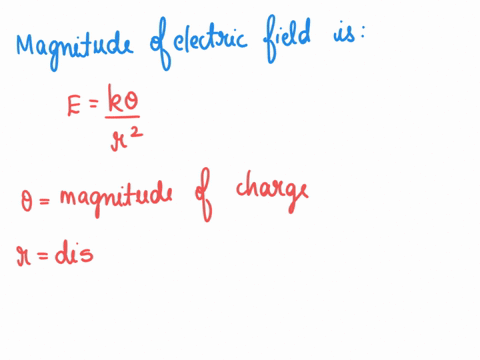 Magnitude of electric field is:
E = kθ / r²
θ = magnitude of charge
r = dis